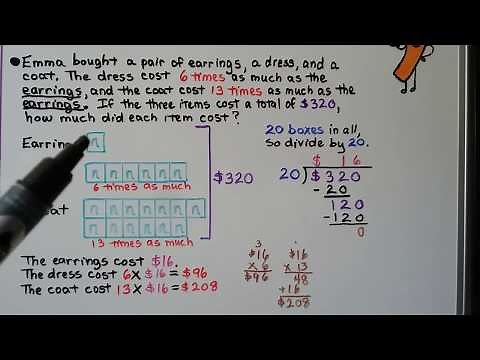 Emma bought a pair of earrings, a dress, and a
coat. The dress cost 6 times as much as the
earrings, and the coat cost 13 times as much as the
earrings. If the three items cost a total of $320,
how much did each item cost?
n
n n n n n n
6 times as much
n n n n n n n
n n n n n n
13 times as much
$320
20 boxes in all,
So divide by 20.
$ 16
20)$320
-20
120
-120
0
The earrings cost $16.
The dress cost 6x$16=$96
The coat cost 13x$16=$208
3
$16
x 6
$96
1
$16
x 13
48
+16
$208